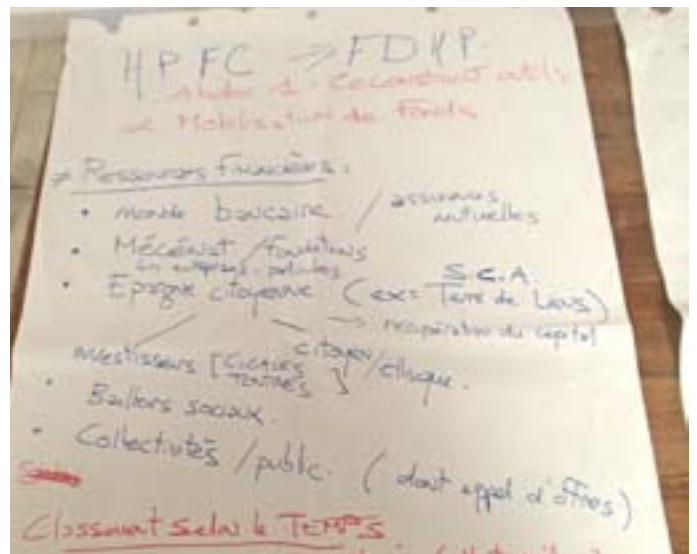 HPFC => FDHP
Atelier 1 - Coconstruct outils
Mobilisation de Fonds
Ressources financières :
• monde bancaire / assurances mutuelles
• Mécénat / fondations
entreprises
• Epargne citoyenne (ex = S.C.A. Terre de Liens)
→ récupération du capital
investisseurs [CIGALES ] citoyen/éthique.
• Bailleurs sociaux.
• Collectivités / public. (dont appel d'offres)
Classement selon le TEMPS